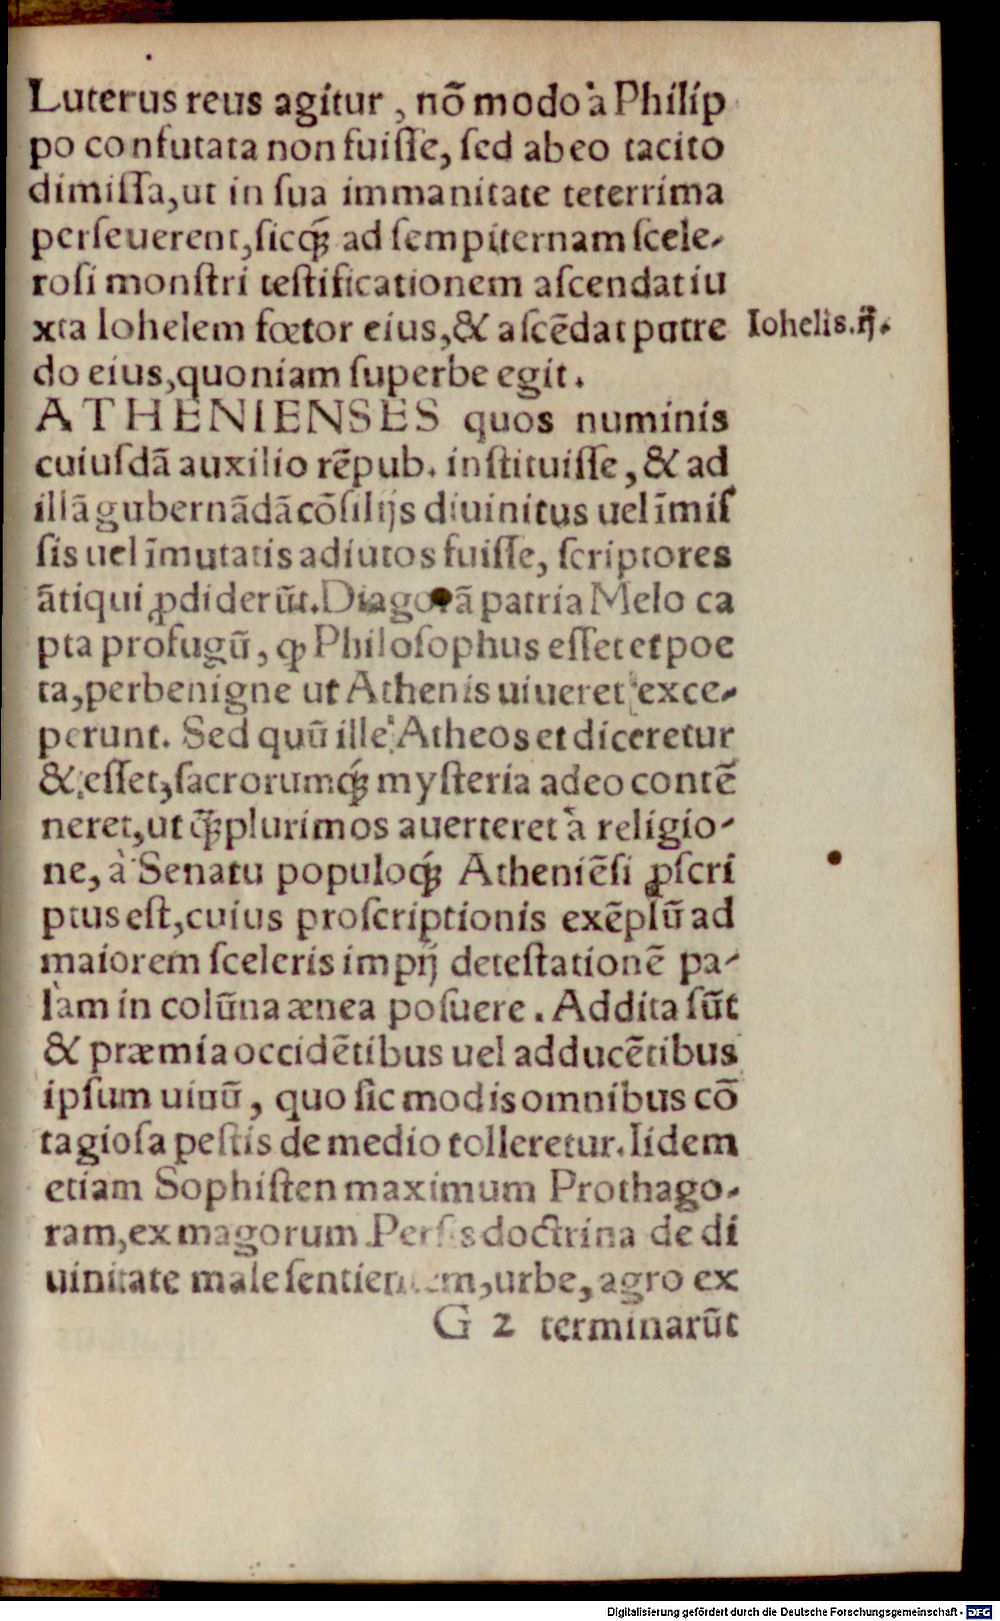 Luterus reus agitur, nõ modo à Philip
po confutata non fuiſſe, ſed ab eo tacito
dimiſſa, ut in ſua immanitate teterrima
perſeuerent, ſicq́ꝫ ad ſempiternam ſcele-
roſi monſtri teſtificationem aſcendat iu
xta Iohelem fœtor eius, & aſcẽdat putre
Iohelis.ij.
do eius, quoniam ſuperbe egit.
ATHENIENSES quos numinis
cuiuſdã auxilio rẽpub. inſtituiſſe, & ad
illã gubernãdã cõſilijs diuinitus uel ĩmiſ
ſis uel ĩmutatis adiutos fuiſſe, ſcriptores
ãtiqui ꝓdiderũt. Diagorã patria Melo ca
pta profugũ, ꝙ Philoſophus eſſet et poe
ta, perbenigne ut Athenis uiueret exce-
perunt. Sed quũ ille Atheos et diceretur
& eſſet, ſacrorumq́ꝫ myſteria adeo contẽ
neret, ut q̃ꝫplurimos auerteret à religio-
ne, à Senatu populoq́ꝫ Atheniẽſi ꝓſcri
ptus eſt, cuius proſcriptionis exẽplũ ad
maiorem ſceleris impij deteſtationẽ pa-
làm in colũna ænea poſuere. Addita ſũt
& præmia occidẽtibus uel adducẽtibus
ipſum uiuũ, quo ſic modis omnibus cõ
tagioſa peſtis de medio tolleretur. Iidem
etiam Sophiſten maximum Prothago-
ram, ex magorum Perſis doctrina de di
uinitate male ſentientem, urbe, agro ex
G 2 terminarũt
Digitalisierung gefördert durch die Deutsche Forschungsgemeinschaft - DFG